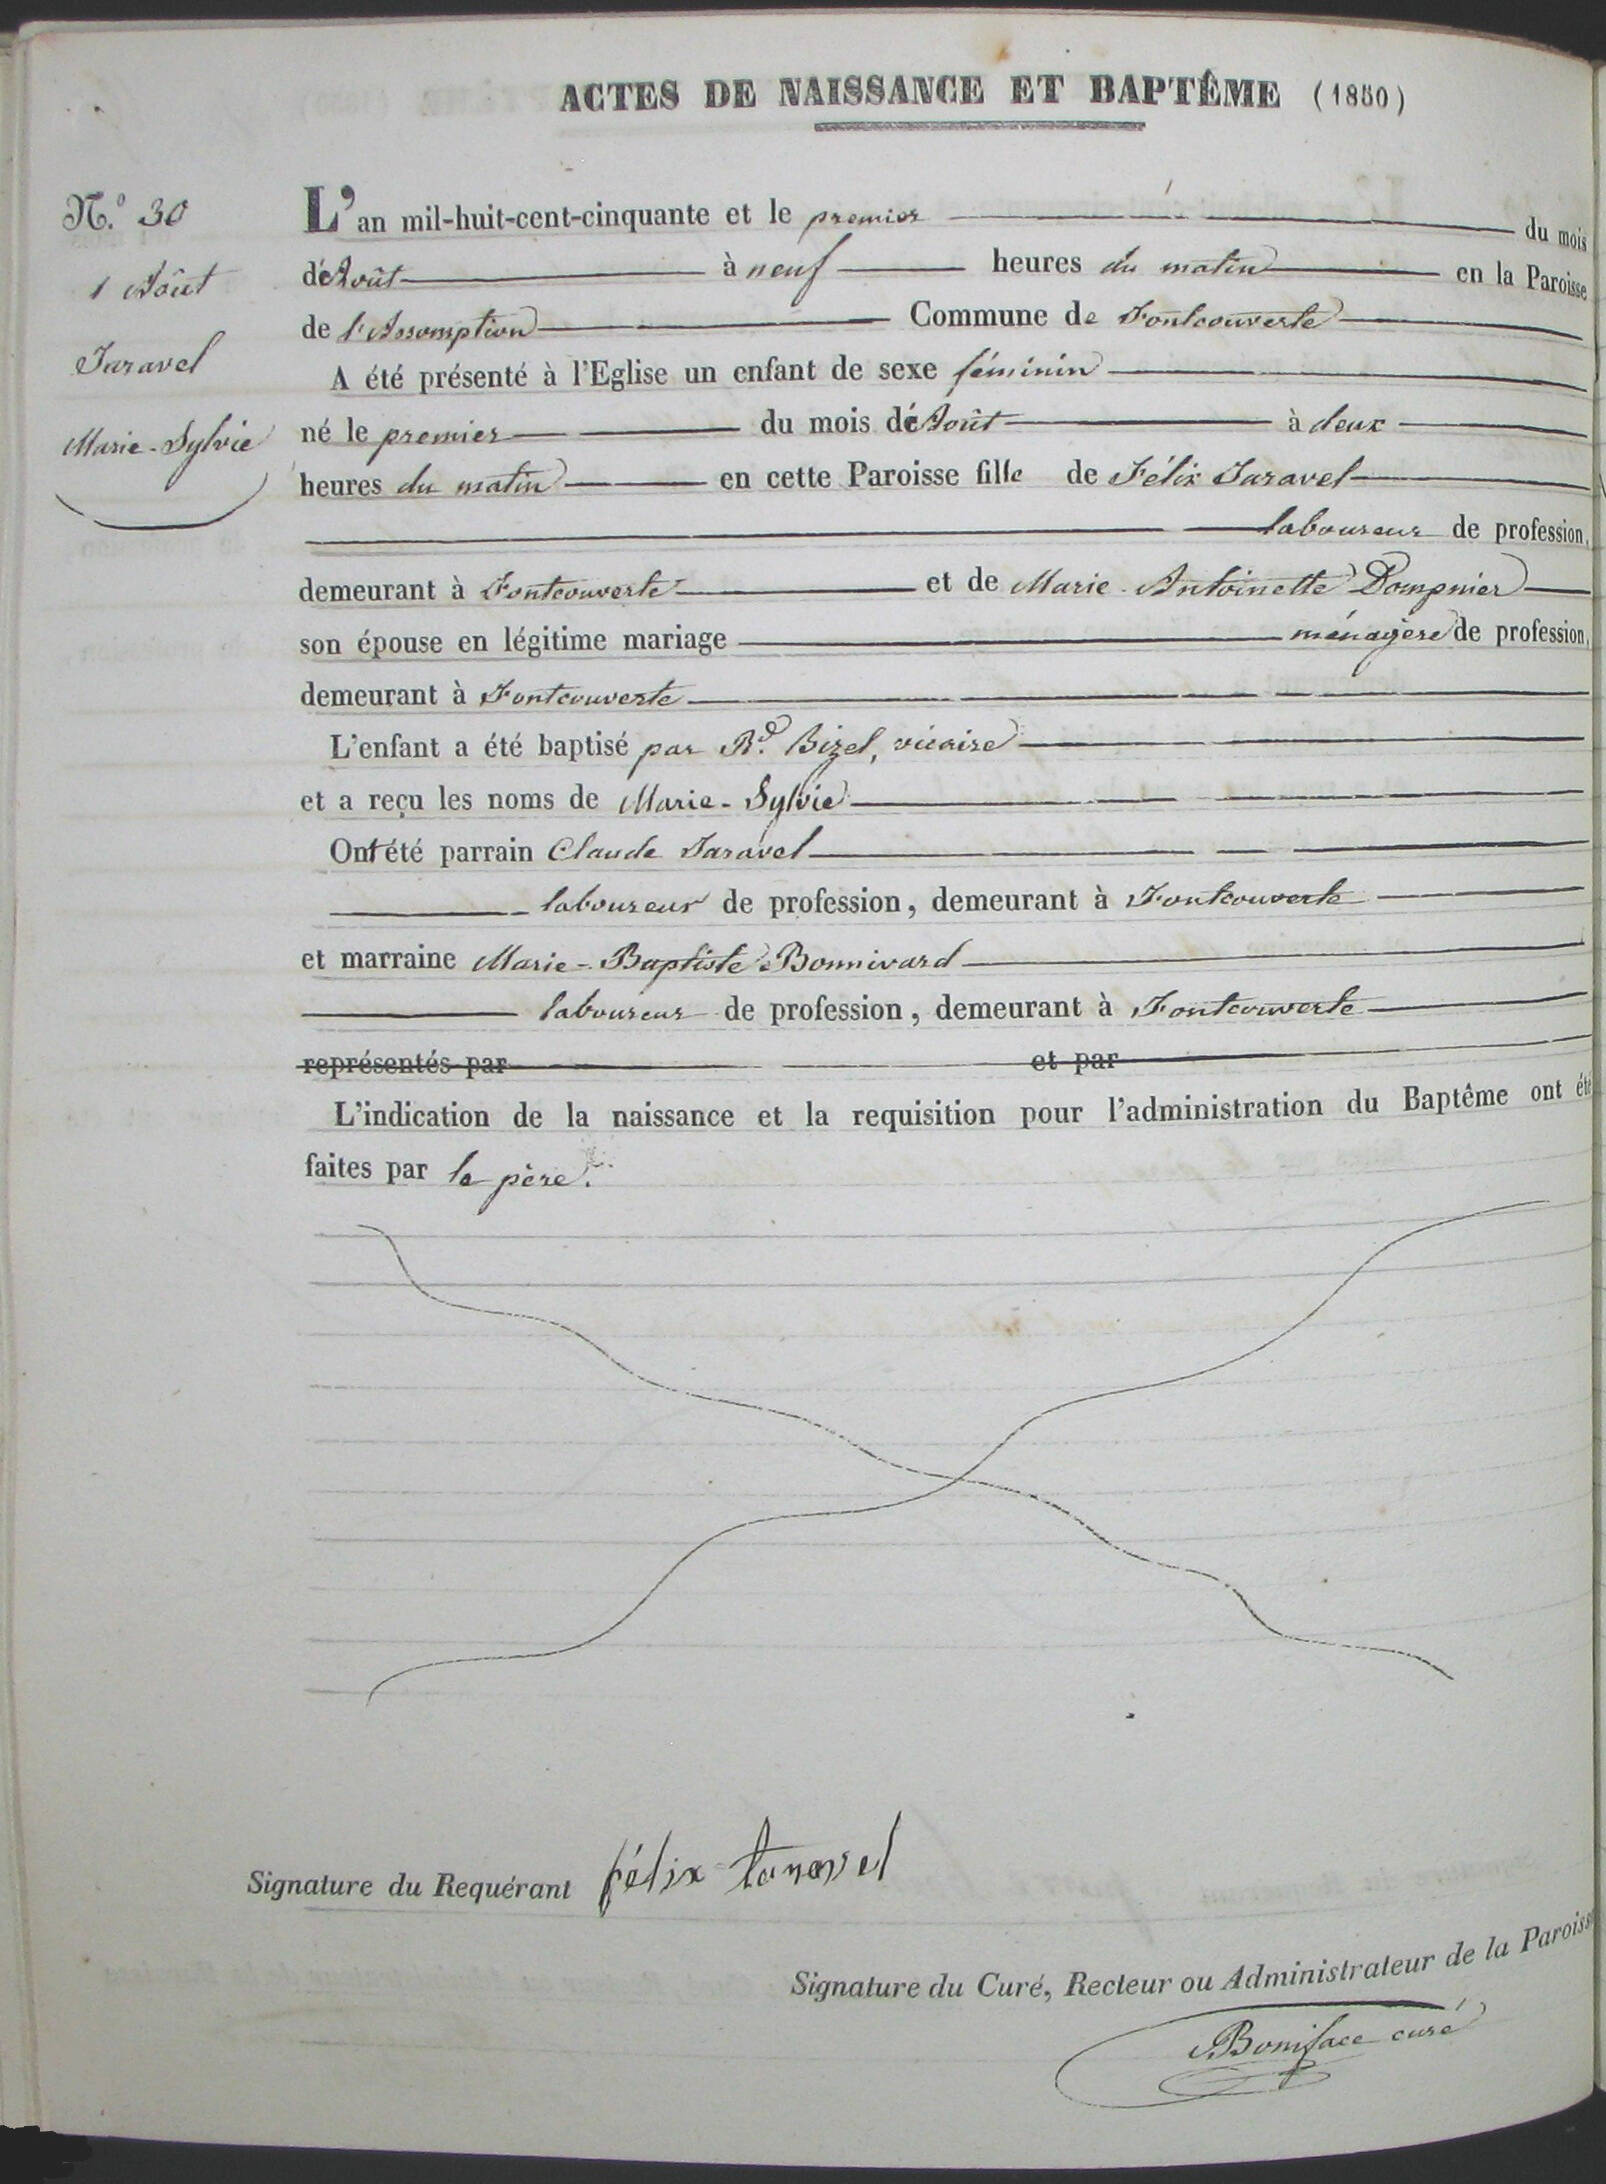 ACTES DE NAISSANCE ET BAPTÊME (1850)
N.o 30
1 Août
Taravel
Marie-Sylvie
L'an mil-huit-cent-cinquante et le premier du mois
d'Août à neuf heures du matin en la Paroisse
de l'Assomption Commune de Fontcouverte
A été présenté à l'Eglise un enfant de sexe féminin
né le premier du mois d'Août à deux
heures du matin en cette Paroisse fille de Félix Taravel
laboureur de profession,
demeurant à Fontcouverte et de Marie-Antoinette Dompnier
son épouse en légitime mariage ménagère de profession,
demeurant à Fontcouverte
L'enfant a été baptisé par Rd. Bizel, vicaire
et a reçu les noms de Marie-Sylvie
Ont été parrain Claude Taravel
laboureur de profession, demeurant à Fontcouverte
et marraine Marie-Baptiste Bonnivard
laboureur de profession, demeurant à Fontcouverte
représentés par et par
L'indication de la naissance et la requisition pour l'administration du Baptême ont été
faites par le père.
Signature du Requérant félix taravel
Signature du Curé, Recteur ou Administrateur de la Paroisse
Boniface curé